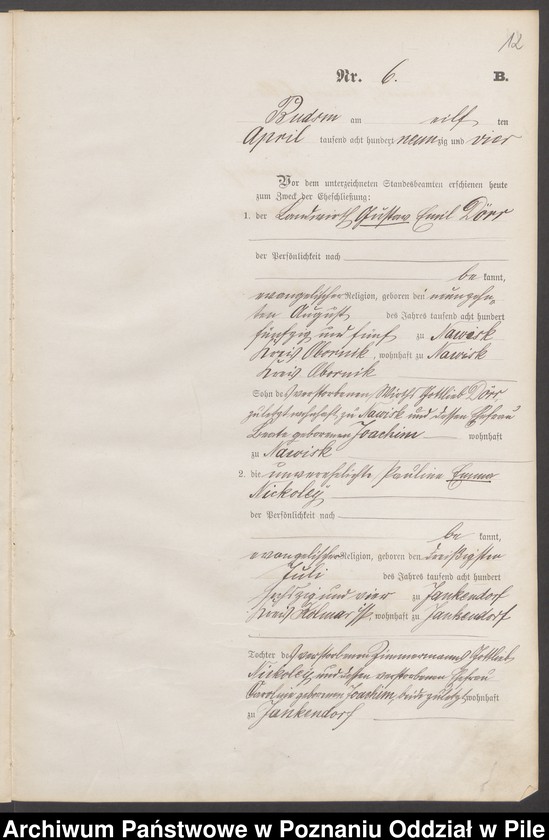 12
Nr. 6. B.
Budsin am eilf ten
April tausend acht hundert neunzig und vier
Vor dem unterzeichneten Standesbeamten erschienen heute
zum Zweck der Eheschließung:
1. der Landwirth Gustav Emil Dörr
der Persönlichkeit nach
be kannt,
evangelischer Religion, geboren den neunzehn
ten August des Jahres tausend acht hundert
fünfzig und fünf zu Nawisk
Kreis Obornik, wohnhaft zu Nawisk
Kreis Obornik
Sohn des verstorbenen Wirths Gottlieb Dörr,
zuletzt wohnhaft zu Nawisk und dessen Ehefrau
Beate geborenen Joachim wohnhaft
zu Nawisk
2. die unverehelichte Pauline Emma
Nickoley
der Persönlichkeit nach
be kannt,
evangelischer Religion, geboren den dreißigsten
Juli des Jahres tausend acht hundert
sechszig und vier zu Jankendorf
Kreis Kolmar i/P, wohnhaft zu Jankendorf
Tochter des verstorbenen Zimmermanns Gottlieb
Nickoley und dessen verstorbenen Ehefrau
Caroline geborenen Joachim, beide zuletzt wohnhaft
zu Jankendorf
Archiwum Państwowe w Poznaniu Oddział w Pile